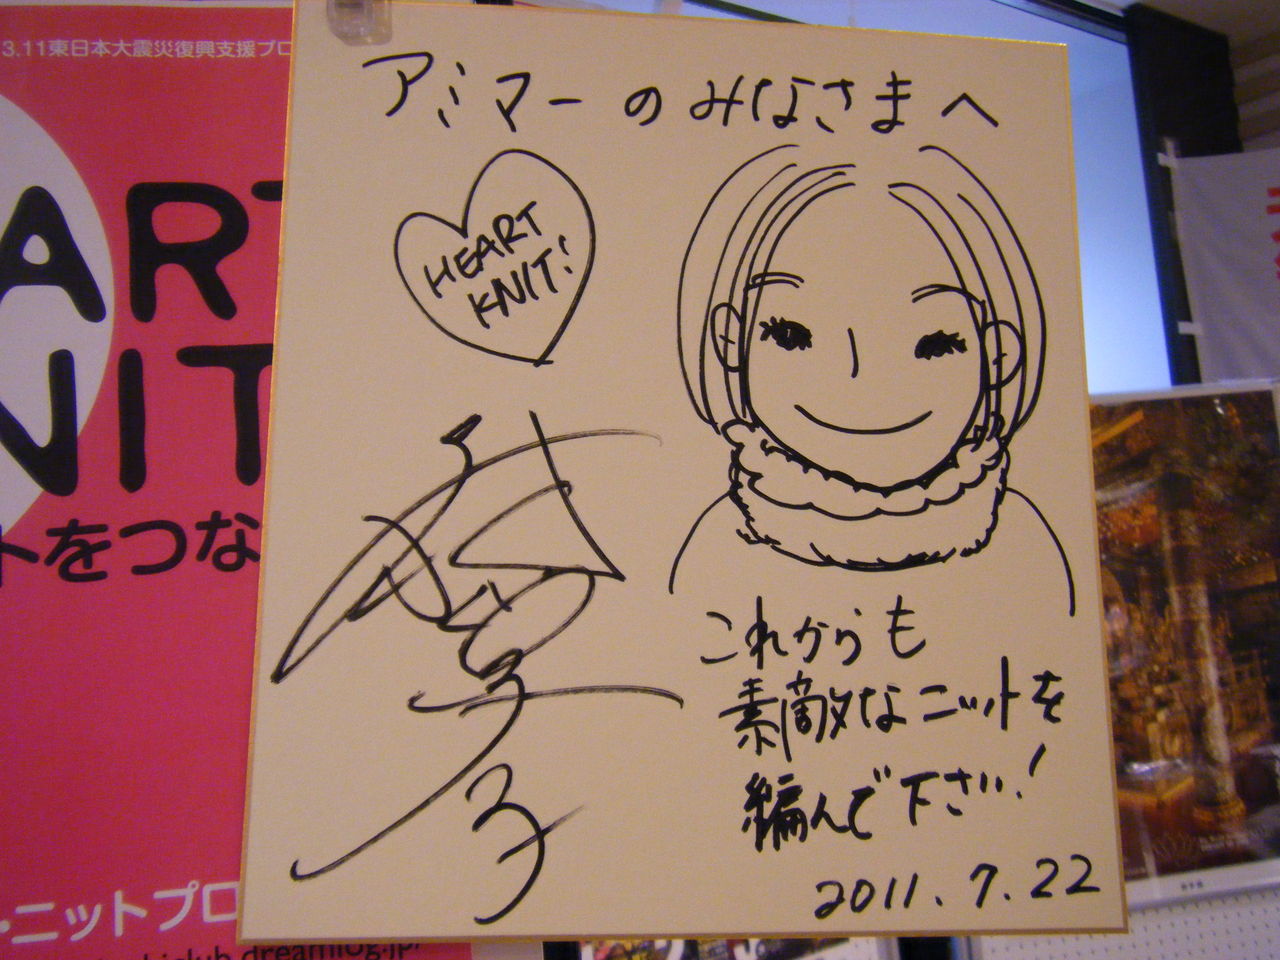 3.11東日本大震災復興支援プロ
ART
NIT
トをつな
・ニットプロ
アミマーのみなさまへ
HEART
KNIT!
これからも
素敵なニットを
編んで下さい!
2011.7.22